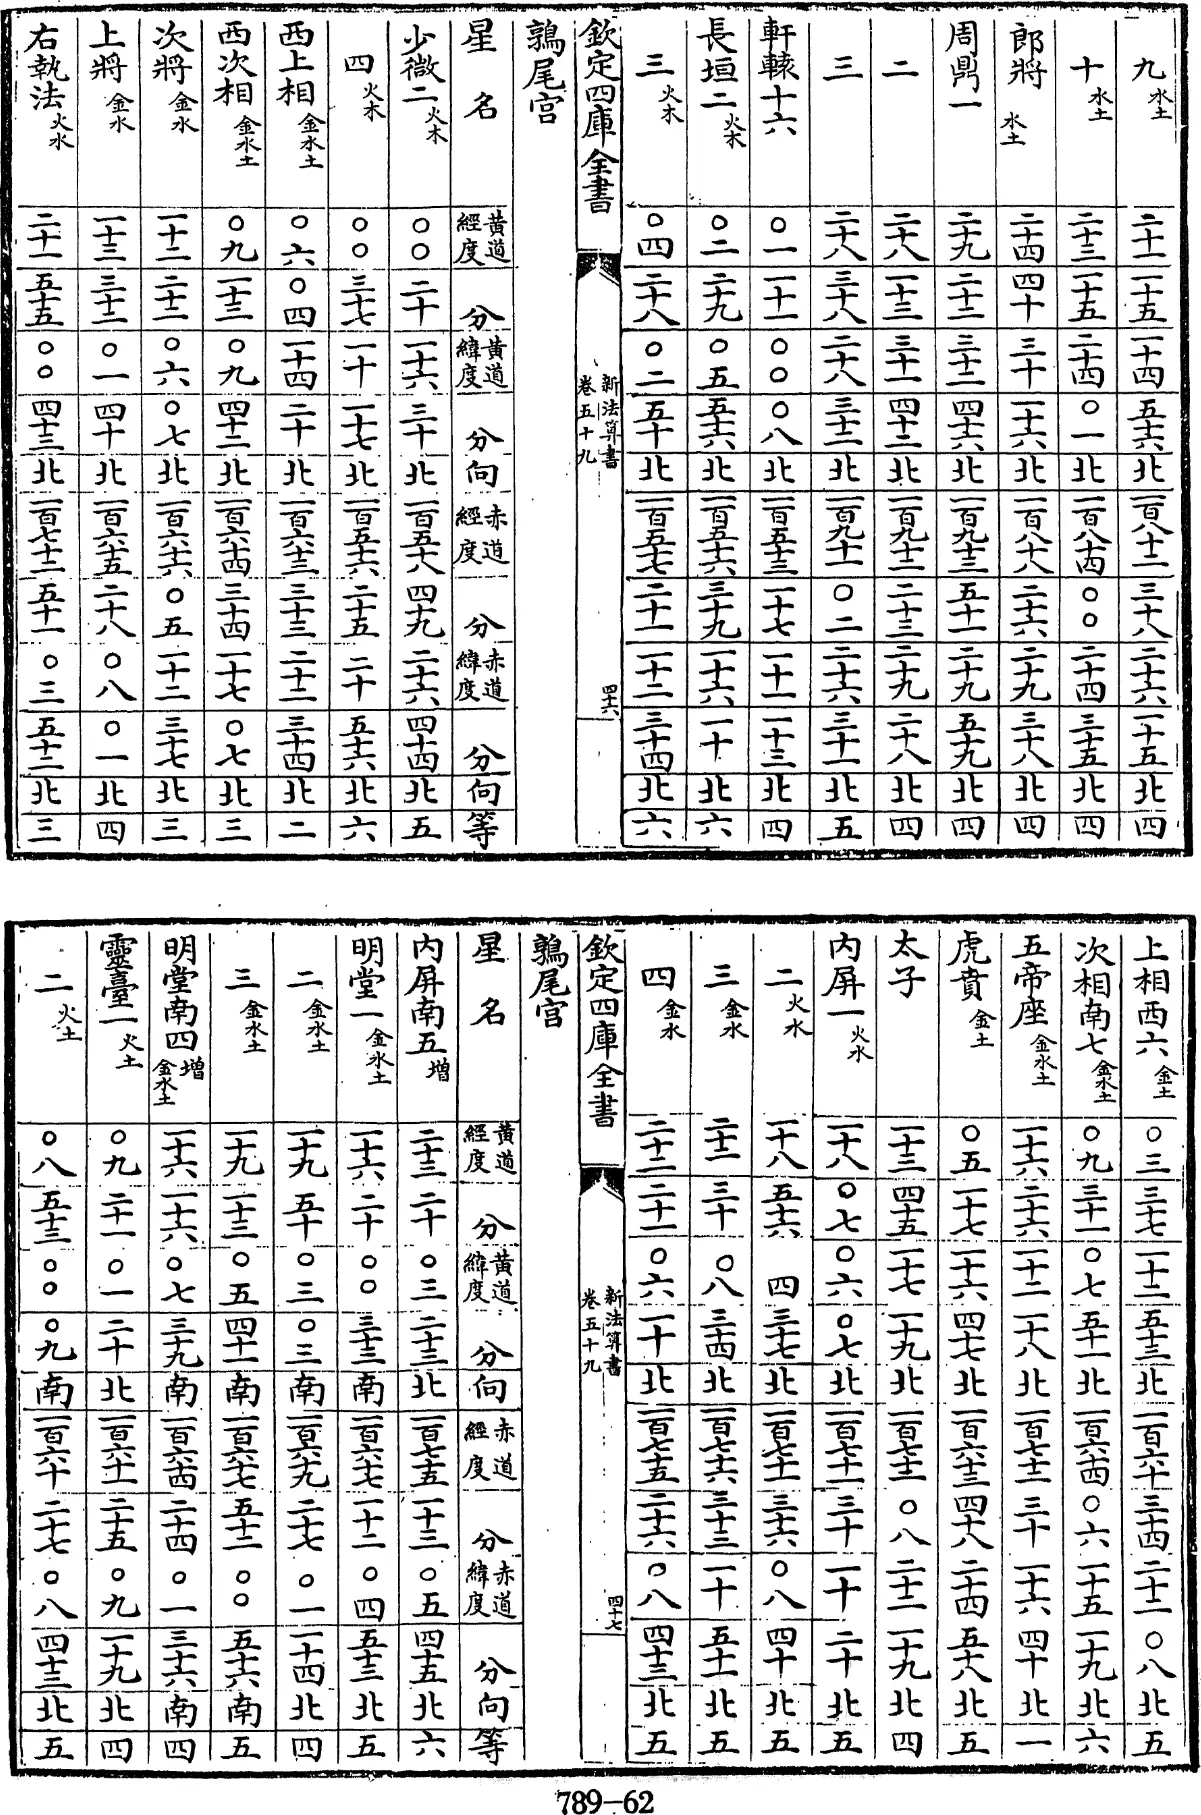 九 水土 二十一 一十五 一十四 五十六 北 一百八十一 三十八 二十六 一十五 北 四
十 水土 二十三 一十五 二十四 〇一 北 一百八十四 〇〇 二十四 三十五 北 四
郎將 水土 二十四 四十 三十 一十六 北 一百八十八 二十六 二十九 三十八 北 四
周鼎一 二十九 二十三 三十二 四十六 北 一百九十三 五十一 二十九 五十九 北 四
二 二十八 一十三 三十一 四十二 北 一百九十二 二十三 二十九 二十八 北 四
三 二十八 三十八 二十八 三十二 北 一百九十一 〇二 二十六 三十一 北 五
軒轅十六 〇一 一十一 〇〇 〇八 北 一百五十三 一十七 一十一 一十三 北 四
長垣二 火木 〇二 二十九 〇五 五十六 北 一百五十六 三十九 一十六 一十 北 六
三 火木 〇四 二十八 〇二 五十 北 一百五十七 二十一 一十二 三十四 北 六
欽定四庫全書 新法算書 卷五十九 四十六
鶉尾宮
星名 黃道經度 分 黃道緯度 分 向 赤道經度 分 赤道緯度 分 向 等
少微二 火木 〇〇 二十 一十六 三十 北 一百五十八 四十九 二十六 四十四 北 五
四 火木 〇〇 三十七 一十 一十七 北 一百五十六 二十五 二十 五十六 北 六
西上相 金水土 〇六 〇四 一十四 二十 北 一百六十三 三十三 二十二 三十四 北 二
西次相 金水土 〇九 一十三 〇九 四十二 北 一百六十四 三十四 一十七 〇七 北 三
次將 金水 一十二 二十三 〇六 〇七 北 一百六十六 〇五 一十二 三十七 北 三
上將 金水 一十三 三十二 〇一 四十 北 一百六十五 二十八 〇八 〇一 北 四
右執法 火水 二十一 五十五 〇〇 四十三 北 一百七十二 五十一 〇三 五十二 北 三
上相西六 金土 〇三 三十七 一十二 五十三 北 一百六十 三十四 二十一 〇八 北 五
次相南七 金水土 〇九 三十一 〇七 五十一 北 一百六十四 〇六 一十五 一十九 北 六
五帝座 金水土 一十六 二十六 一十二 一十八 北 一百七十二 三十 一十六 四十 北 一
虎賁 金土 〇五 一十七 一十六 四十七 北 一百六十三 四十八 二十四 五十八 北 五
太子 一十三 四十五 一十七 一十九 北 一百七十二 〇八 二十二 一十九 北 四
内屏一 火水 一十八 〇七 〇六 〇七 北 一百七十一 三十 一十 二十 北 五
二 火水 一十八 五十六 四 三十七 北 一百七十一 三十六 〇八 四十 北 五
三 金水 二十二 三十 〇八 三十四 北 一百七十六 三十三 一十 五十一 北 五
四 金水 二十二 二十一 〇六 一十 北 一百七十五 二十六 〇八 四十三 北 五
欽定四庫全書 新法算書 卷五十九 四十七
鶉尾宮
星名 黃道經度 分 黃道緯度 分 向 赤道經度 分 赤道緯度 分 向 等
内屏南五 增 二十三 二十 〇三 二十三 北 一百七十五 一十三 〇五 四十五 北 六
明堂一 金水土 一十六 二十 〇〇 三十三 南 一百六十七 一十二 〇四 五十三 北 五
二 金水土 一十九 五十 〇三 〇三 南 一百六十九 二十七 〇一 一十四 北 四
三 金水土 一十九 一十三 〇五 四十一 南 一百六十七 五十二 〇〇 五十六 南 五
明堂南四 增 金水土 一十六 一十六 〇七 三十九 南 一百六十四 二十四 〇一 三十六 南 四
靈臺一 火土 〇九 二十一 〇一 二十 北 一百六十一 二十五 〇九 一十九 北 四
二 火土 〇八 五十三 〇〇 〇九 南 一百六十 二十七 〇八 四十三 北 五
789-62